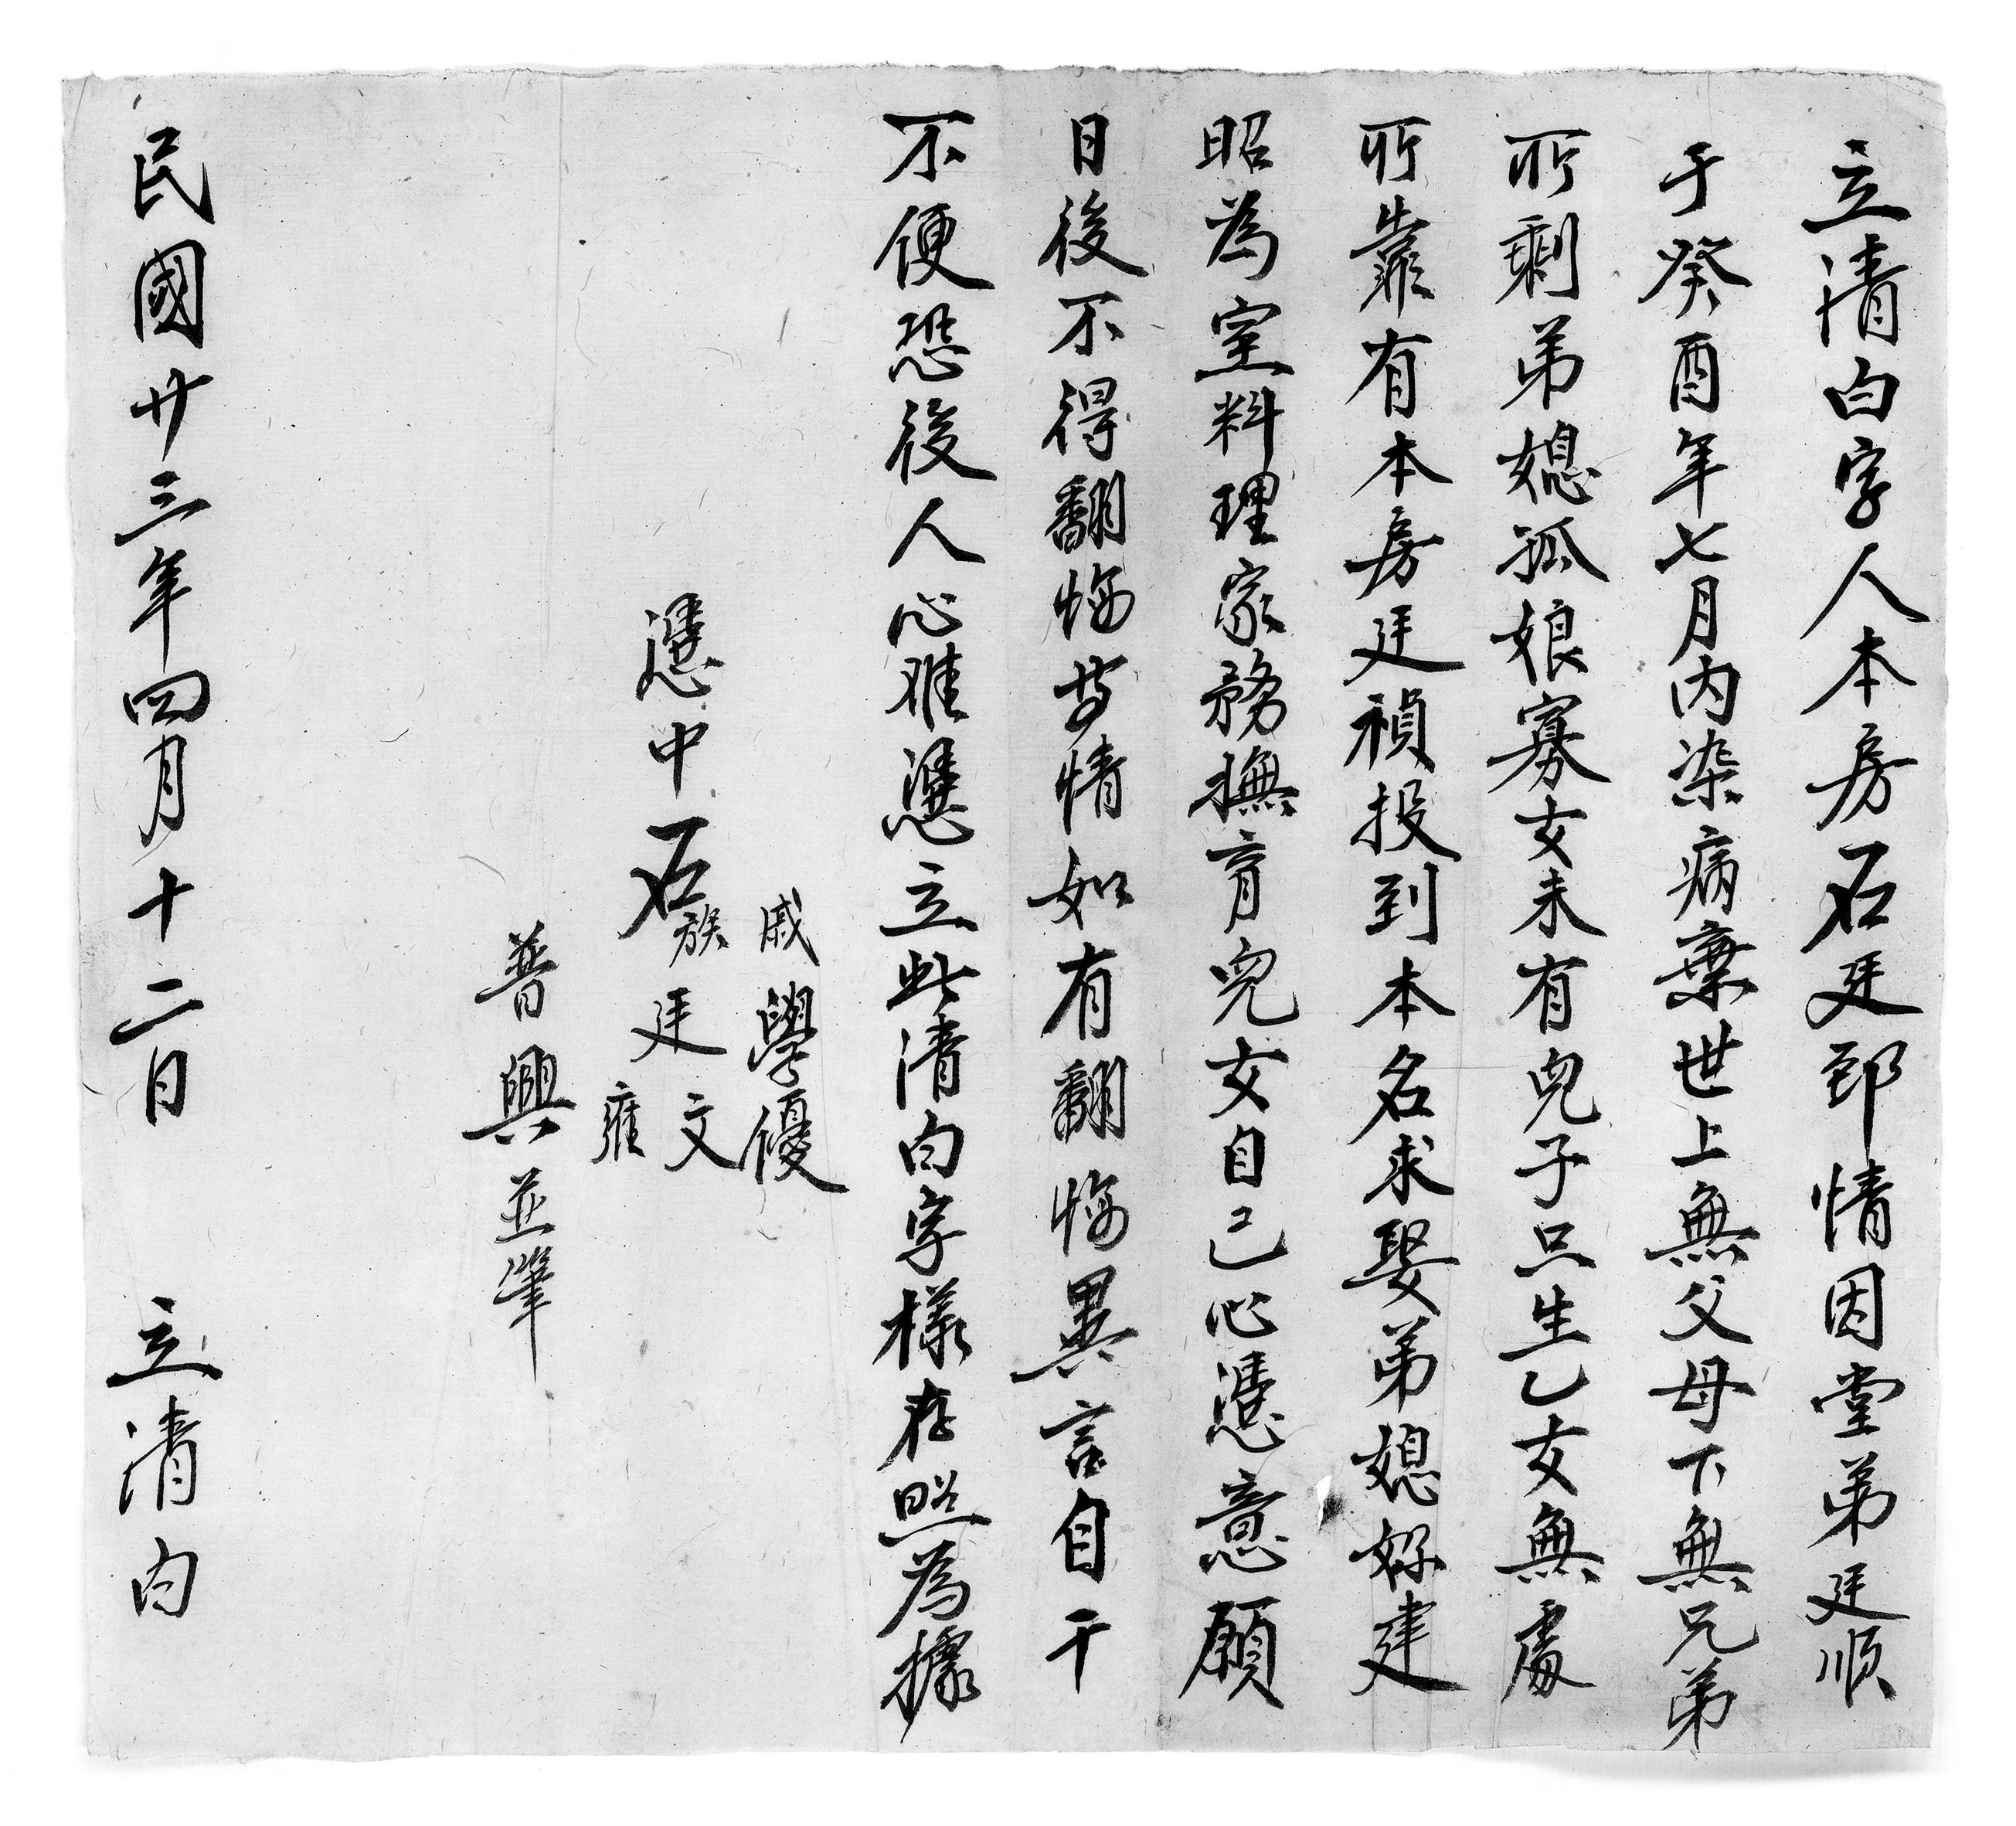 立清白字人本房石廷郅情因堂弟廷順
于癸酉年七月內染病棄世上無父母下無兄弟
所剩弟媳孤娘寡女未有兒子只生乙女無處
所靠有本房廷禎投到本名求娶弟媳妳建
昭為室料理家務撫育兒女自己心憑意願
日後不得翻悔等情如有翻悔異言自干
不便恐後人心难憑立此清白字樣存照為據
戚學優
憑中石族廷文
雍
普興並筆
民國廿三年四月十二日 立清白